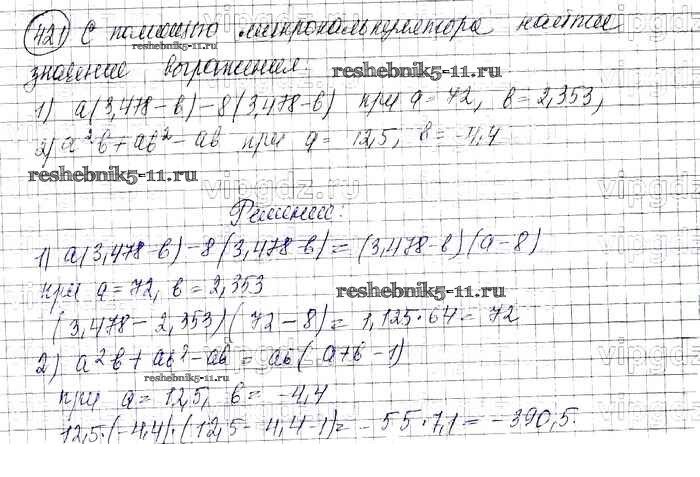 421 С помощью микрокалькулятора найти
reshebnik5-11.ru
значение выражения:
reshebnik5-11.ru
1) a(3,478-b)-8(3,478-b) при a=72, b=2,353,
2) a²b+ab²-ab при a=12,5, b=-4,4
reshebnik5-11.ru
vipgdz.ru
Решение:
1) a(3,478-b)-8(3,478-b)=(3,478-b)(a-8)
при a=72, b=2,353
reshebnik5-11.ru
(3,478-2,353)(72-8)=1,125·64=72
2) a²b+ab²-ab=ab(a+b-1)
reshebnik5-11.ru
при a=12,5, b=-4,4
12,5·(-4,4)·(12,5-4,4-1)=-55·7,1=-390,5.